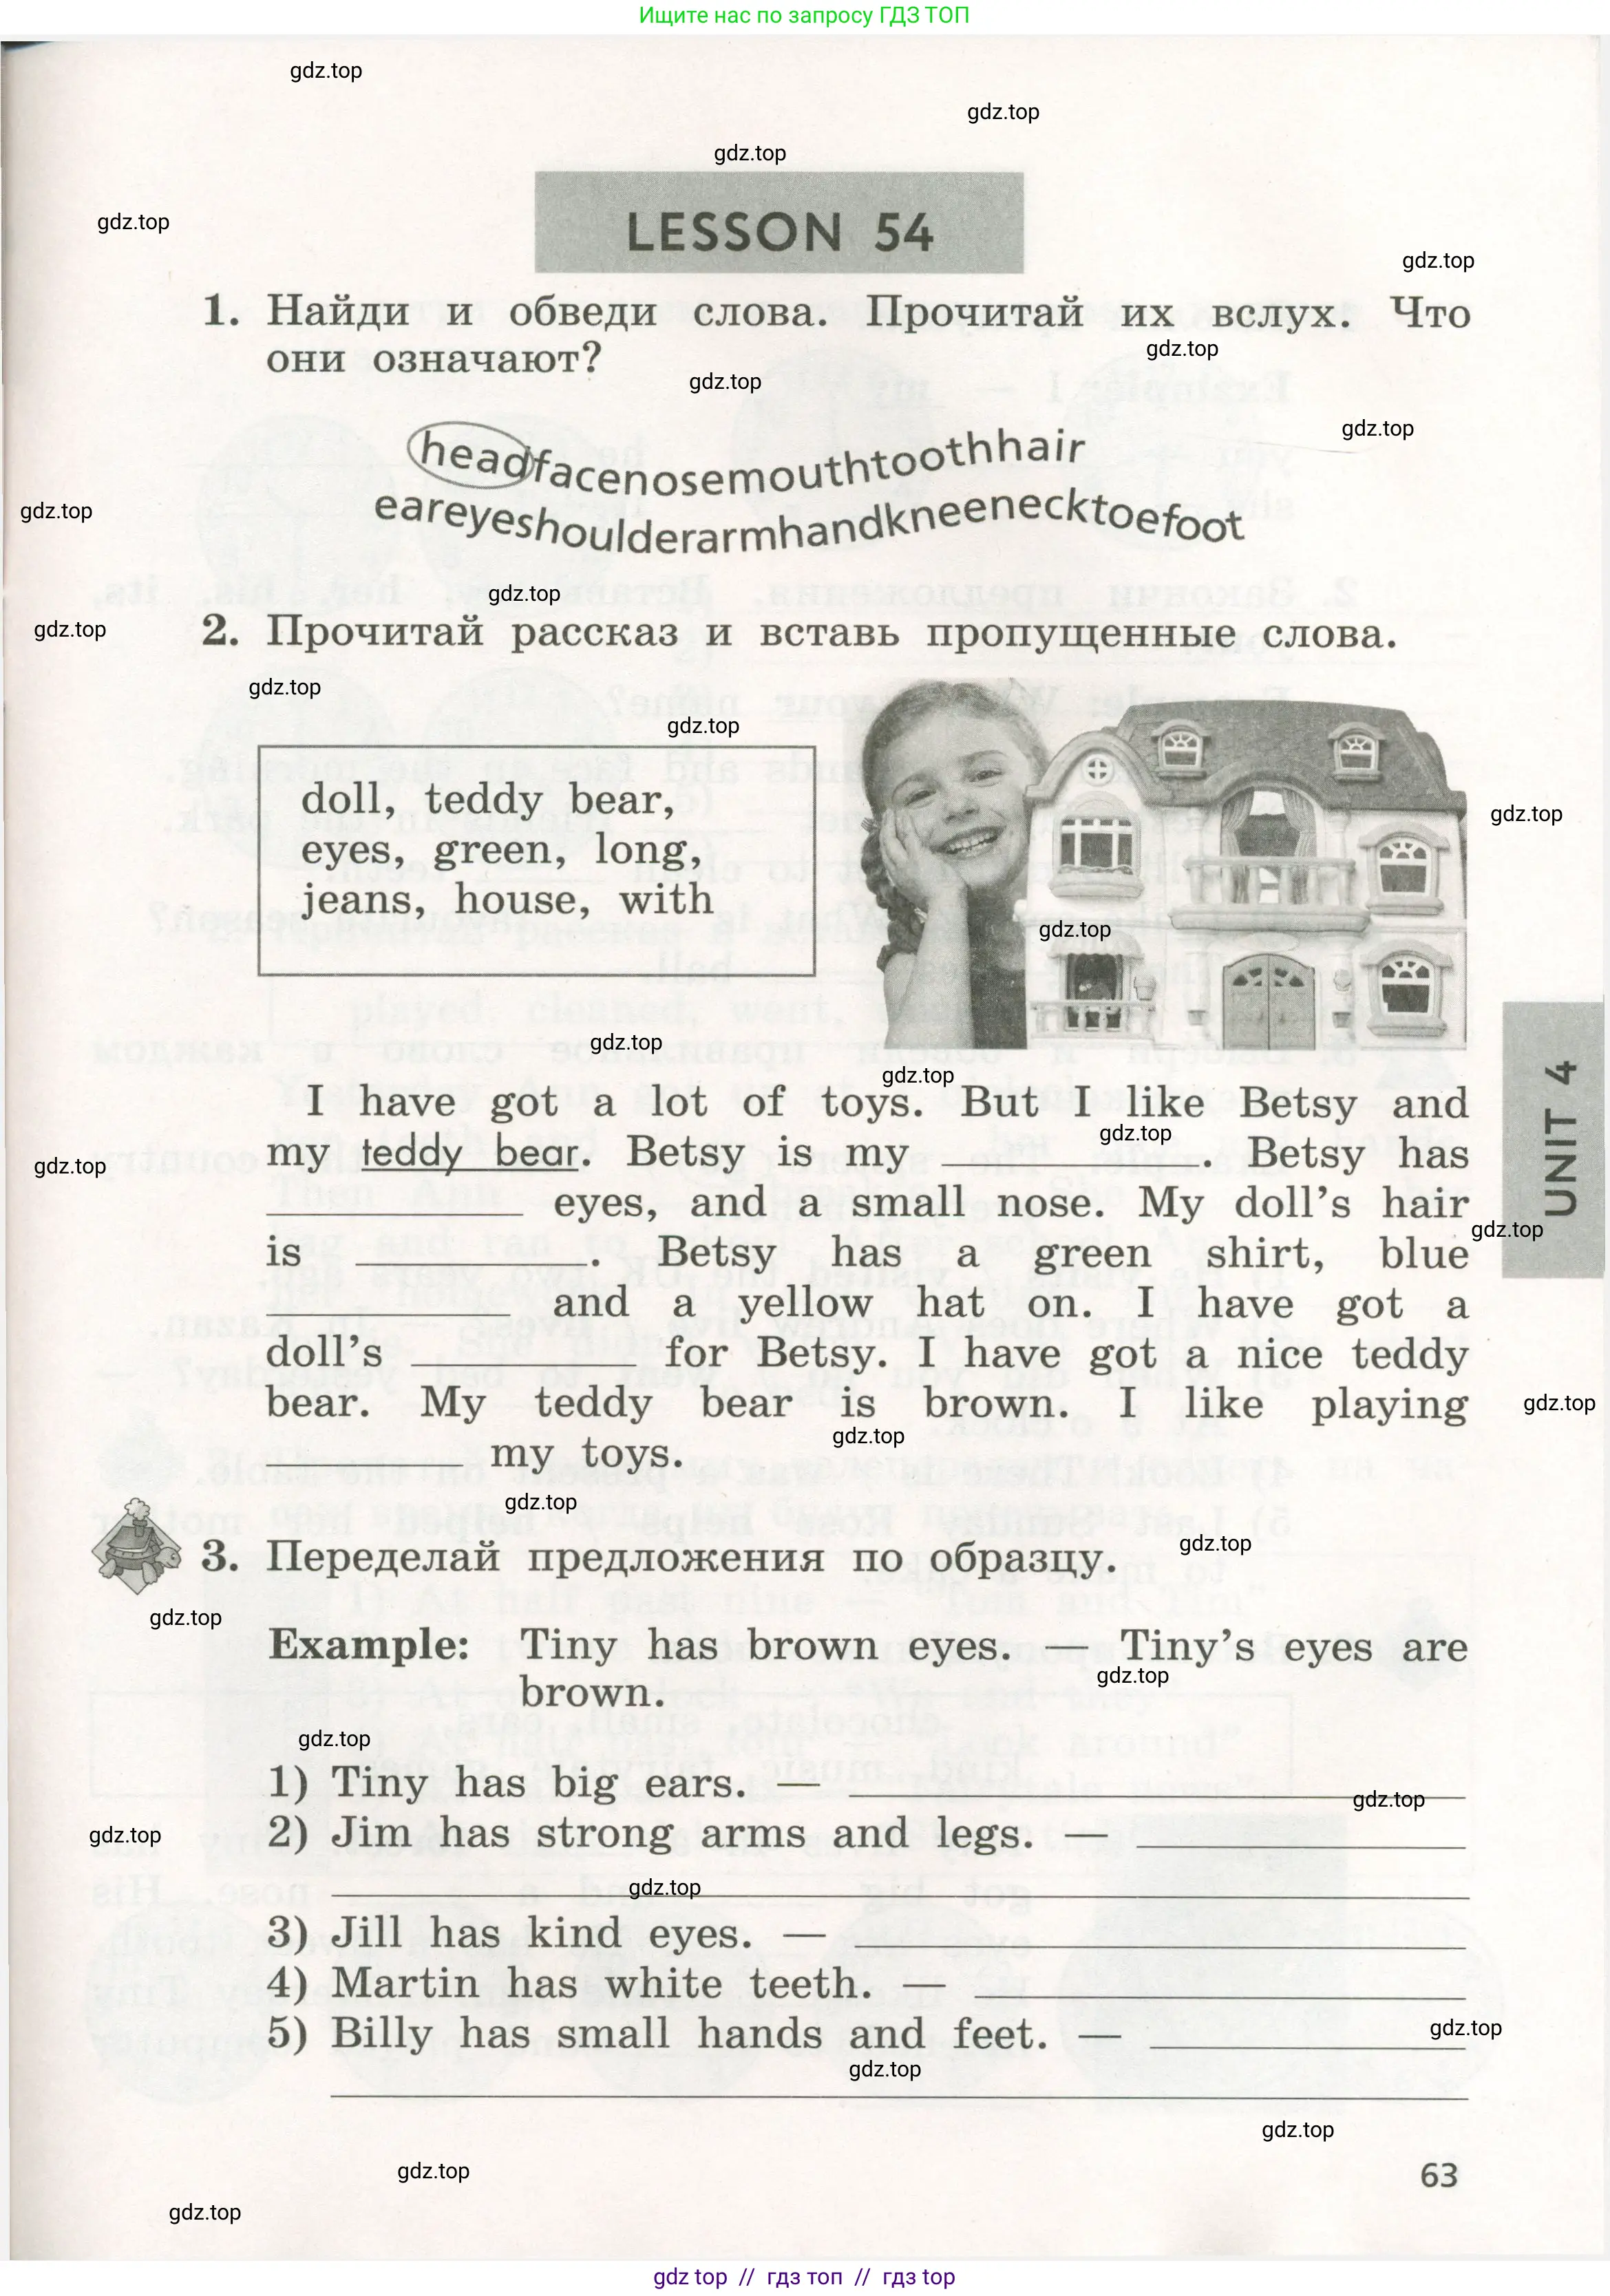 Ищите нас по запросу ГДЗ ТОП
gdz.top
gdz.top
gdz.top
LESSON 54
gdz.top
gdz.top
1. Найди и обведи слова. Прочитай их вслух. Что
они означают?
gdz.top
gdz.top
gdz.top
headfacenosemouthtoothhair
eareyeshoulderarmhandkneenecktoefoot
gdz.top
gdz.top
gdz.top
2. Прочитай рассказ и вставь пропущенные слова.
gdz.top
gdz.top
doll, teddy bear,
eyes, green, long,
jeans, house, with
gdz.top
gdz.top
gdz.top
gdz.top
I have got a lot of toys. But I like Betsy and
gdz.top
my teddy bear. Betsy is my ____. Betsy has
gdz.top
____ eyes, and a small nose. My doll's hair
gdz.top
is ____. Betsy has a green shirt, blue
____ and a yellow hat on. I have got a
doll's ____ for Betsy. I have got a nice teddy
bear. My teddy bear is brown. I like playing
gdz.top
gdz.top
____ my toys.
gdz.top
UNIT 4
3. Переделай предложения по образцу.
gdz.top
gdz.top
Example: Tiny has brown eyes. — Tiny's eyes are
gdz.top
brown.
gdz.top
1) Tiny has big ears. — ____
gdz.top
2) Jim has strong arms and legs. — ____
gdz.top
gdz.top
3) Jill has kind eyes. — ____
4) Martin has white teeth. — ____
5) Billy has small hands and feet. — ____
gdz.top
gdz.top
gdz.top
gdz.top
63
gdz.top
gdz top // гдз топ // гдз top